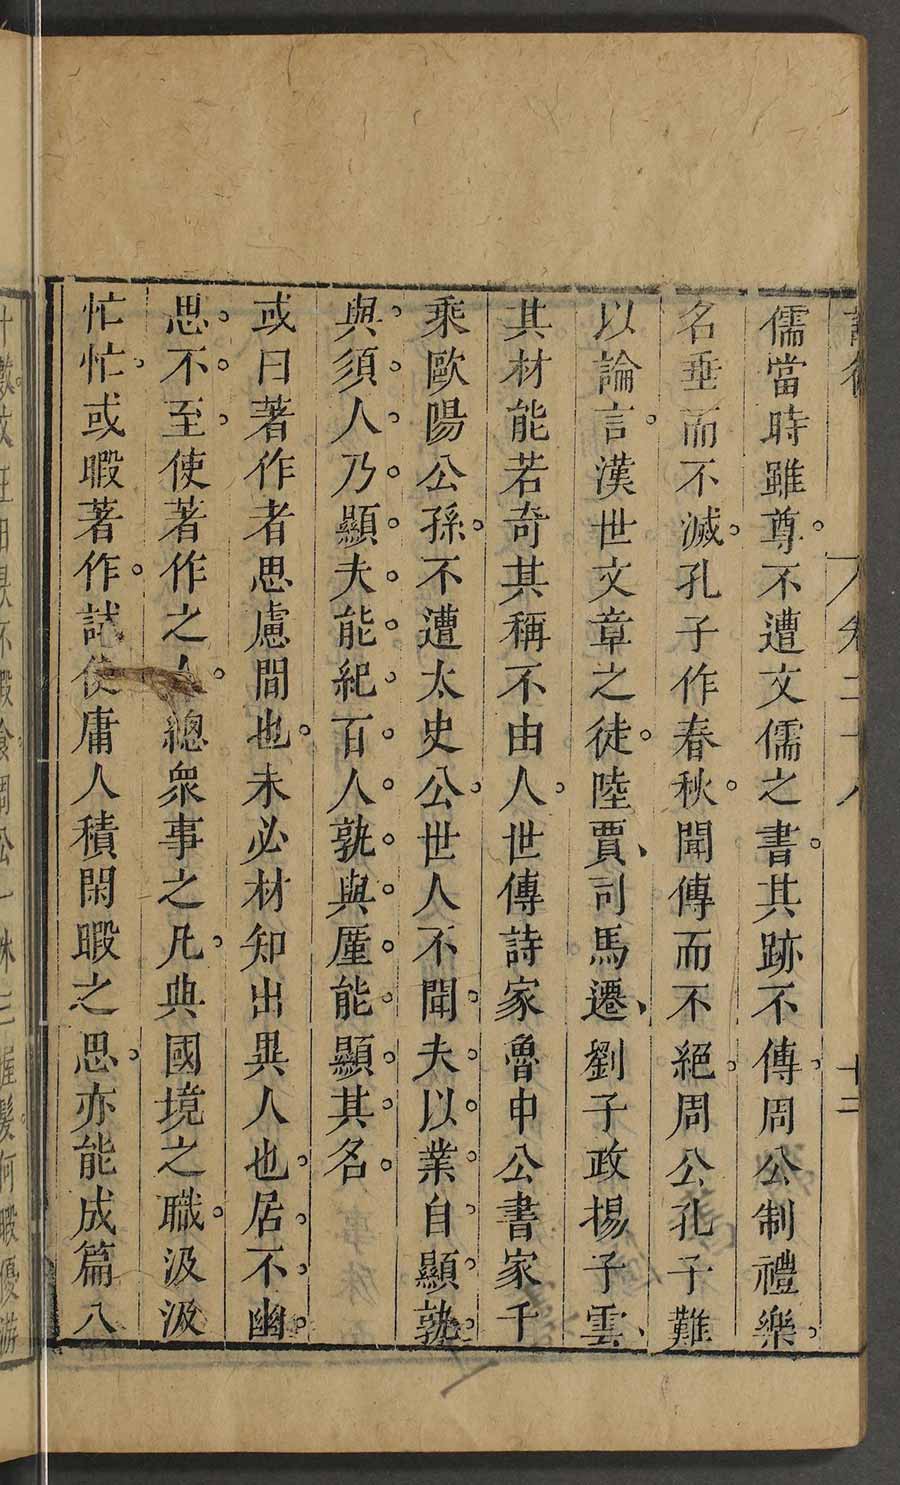 論衡 卷二十八 十二
儒當時雖尊。不遭文儒之書。其跡不傳。周公制禮樂。
名垂而不滅。孔子作春秋。聞傳而不絕。周公孔子難
以論言。漢世文章之徒。陸賈、司馬遷、劉子政揚子雲、
其材能若奇其稱不由人。世傳詩家魯申公書家千
乘歐陽公孫。不遭太史公。世人不聞。夫。以。業。自。顯。孰。
與。須。人。乃。顯。夫。能。紀。百。人。孰。與。廑。能。顯。其。名。
或曰著作者思慮間也。未必材知出異人也。居。不。幽。
思。不。至。使著作之人。總衆事之凡。典國境之職。汲汲
忙忙。或暇著作。試使庸人積閑暇之思。亦能成篇八